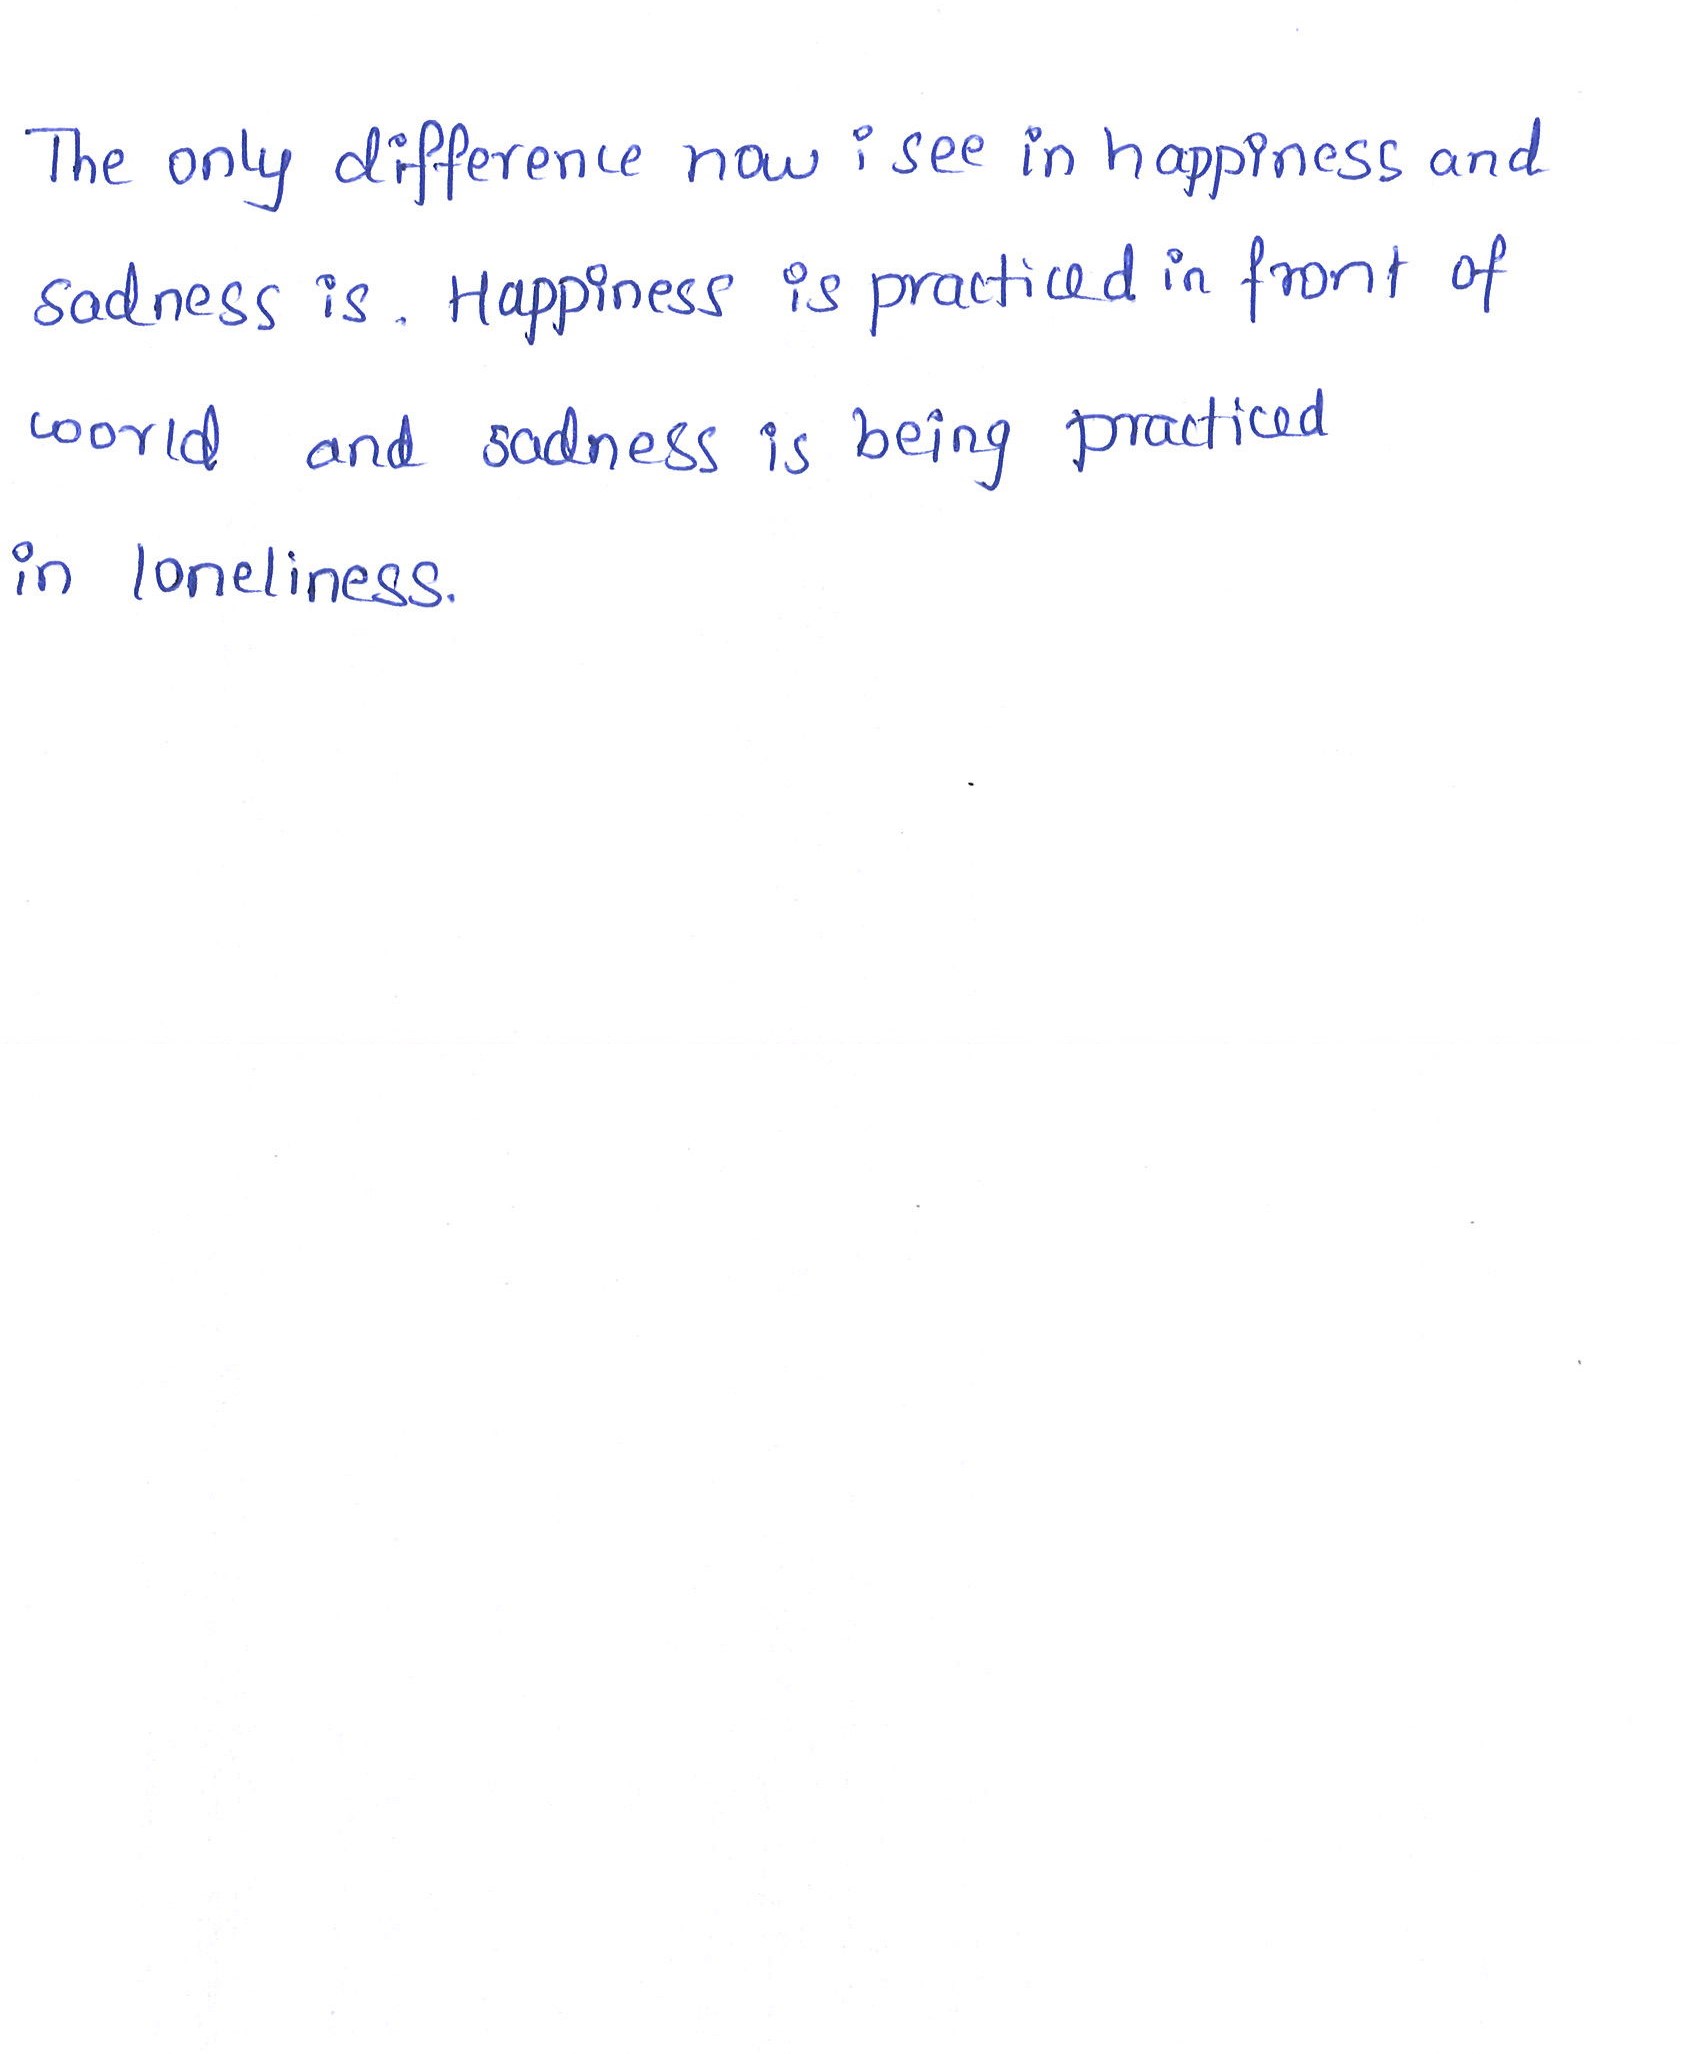 The only difference now i see in happiness and
sadness is. Happiness is practiced in front of
world and sadness is being practiced
in loneliness.